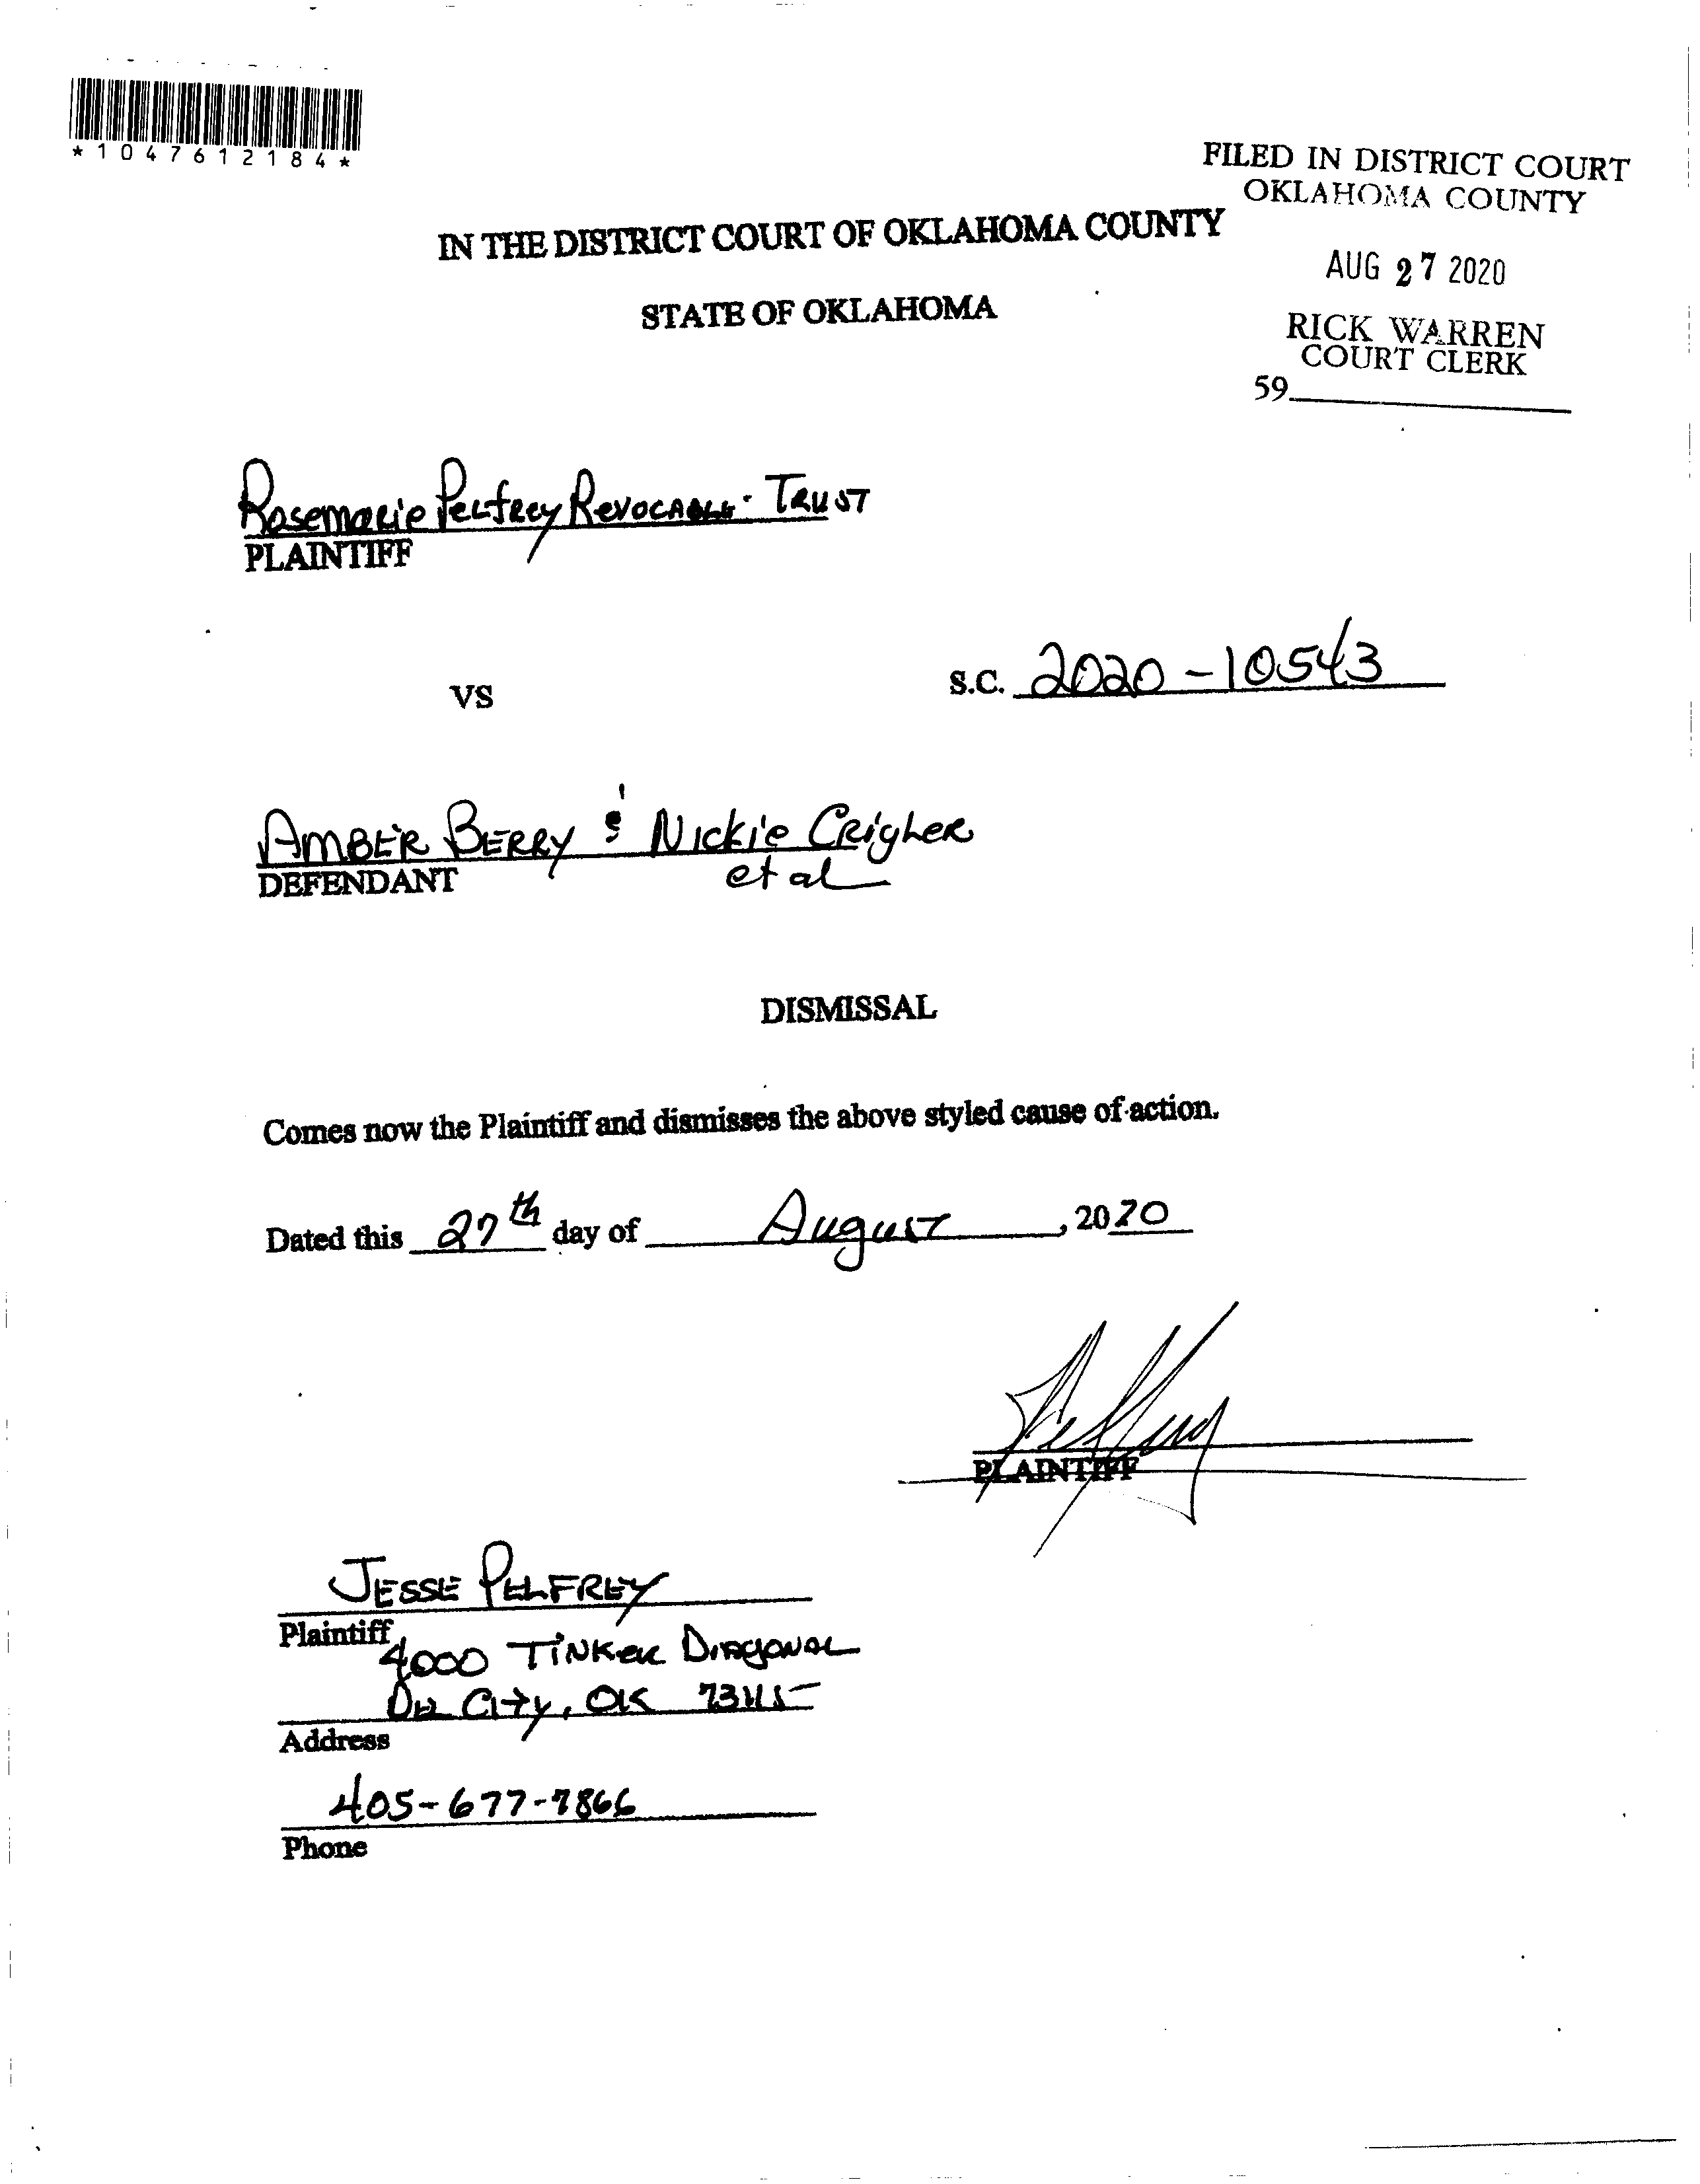 *1047612184*
FILED IN DISTRICT COURT
OKLAHOMA COUNTY
AUG 27 2020
RICK WARREN
COURT CLERK
59
IN THE DISTRICT COURT OF OKLAHOMA COUNTY
STATE OF OKLAHOMA
Rosemarie Pelfrey Revocable Trust
PLAINTIFF
VS
S.C. 2020-10543
AMBER BERRY & Nickie Crigler
et al
DEFENDANT
DISMISSAL
Comes now the Plaintiff and dismisses the above styled cause of action.
Dated this 27th day of August, 2020
Pelfrey
PLAINTIFF
JESSE PELFREY
Plaintiff
4000 TINKER DIAGONAL
Del City, OK 73115
Address
405-677-7866
Phone